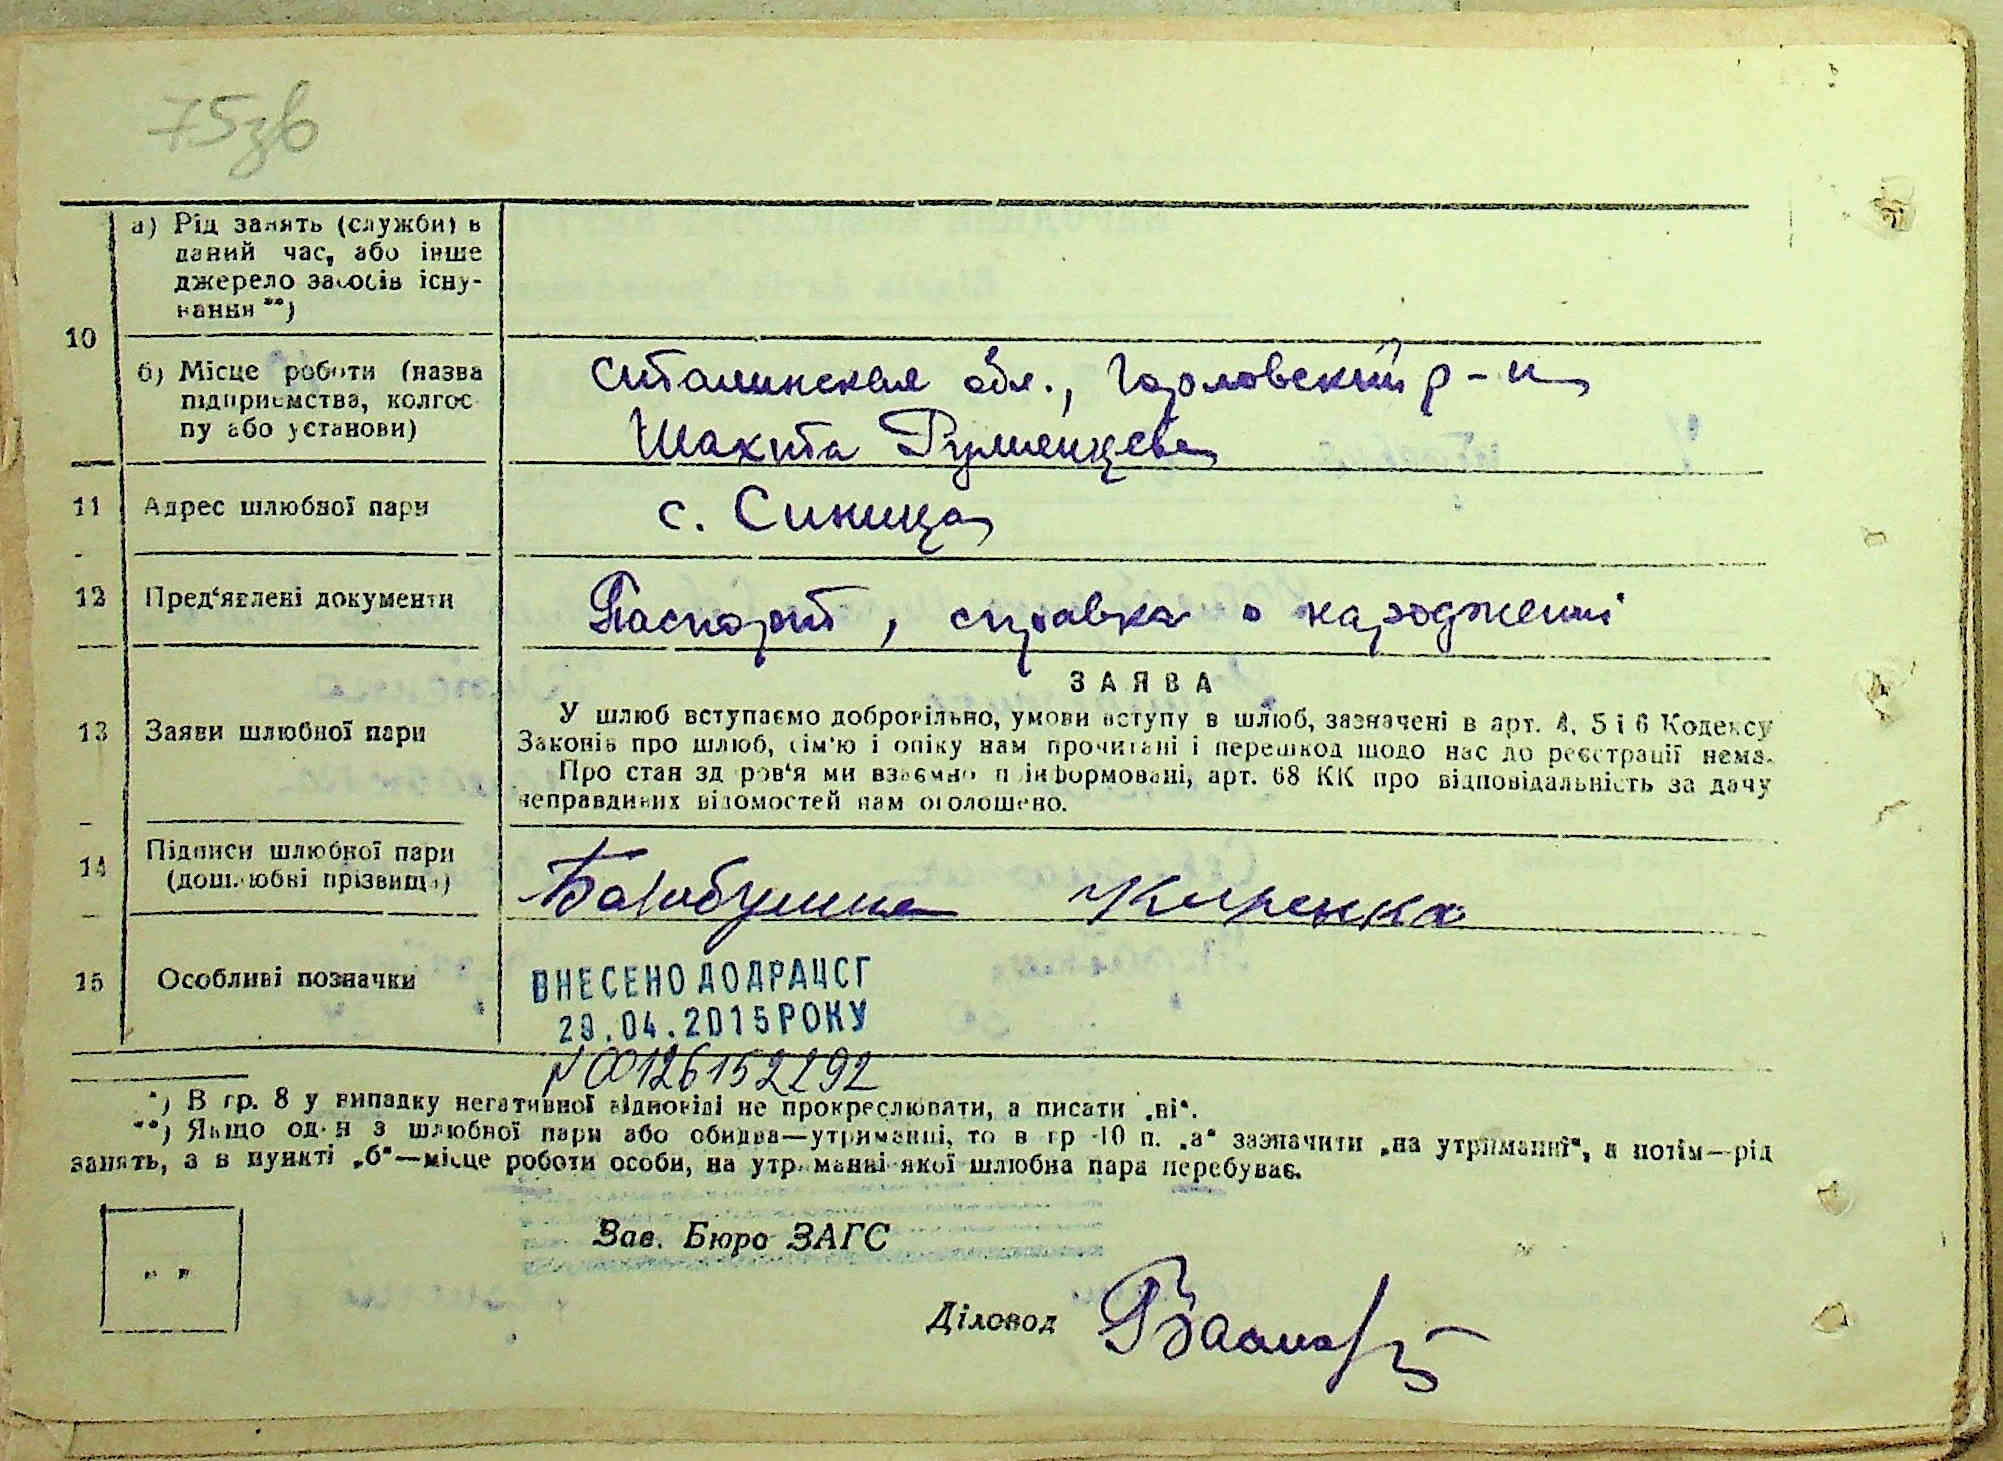 75зв
а) Рід занять (служби) в
даний час, або інше
джерело засобів існу-
вання **)
10
б) Місце роботи (назва
підприємства, колгос-
пу або установи)
Сталинская обл., Горловский р-н
Шахта Румянцева
11 Адрес шлюбної пари
с. Синица
12 Пред‘явлені документи
Паспорт, справка о народженні
ЗАЯВА
13 Заяви шлюбної пари
У шлюб вступаємо добровільно, умови вступу в шлюб, зазначені в арт. 4, 5 і 6 Кодексу
Законів про шлюб, сім'ю і опіку нам прочитані і перешкод щодо нас до реєстрації нема.
Про стан здоров‘я ми взаємно поінформовані, арт. 68 КК про відповідальність за дачу
неправдивих відомостей нам оголошено.
14 Підписи шлюбної пари
(дошлюбні прізвища)
Киренко
15 Особливі позначки
ВНЕСЕНО ДО ДРАЦСГ
29.04.2015 РОКУ
N 00126152292
*) В гр. 8 у випадку негативної відповіді не прокреслювати, а писати „ні“.
**) Якщо один з шлюбної пари або обидва—утриманці, то в гр 10 п. „а“ зазначити „на утриманні“, а потім—рід
занять, а в пункті „б“—місце роботи особи, на утриманні якої шлюбна пара перебуває.
Зав. Бюро ЗАГС
Діловод